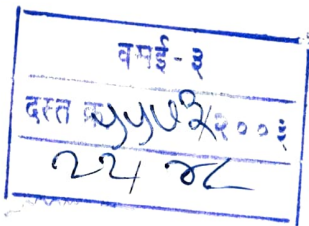 वसई-३
दस्त क्र ५५७२/२००३
२२/ ४८